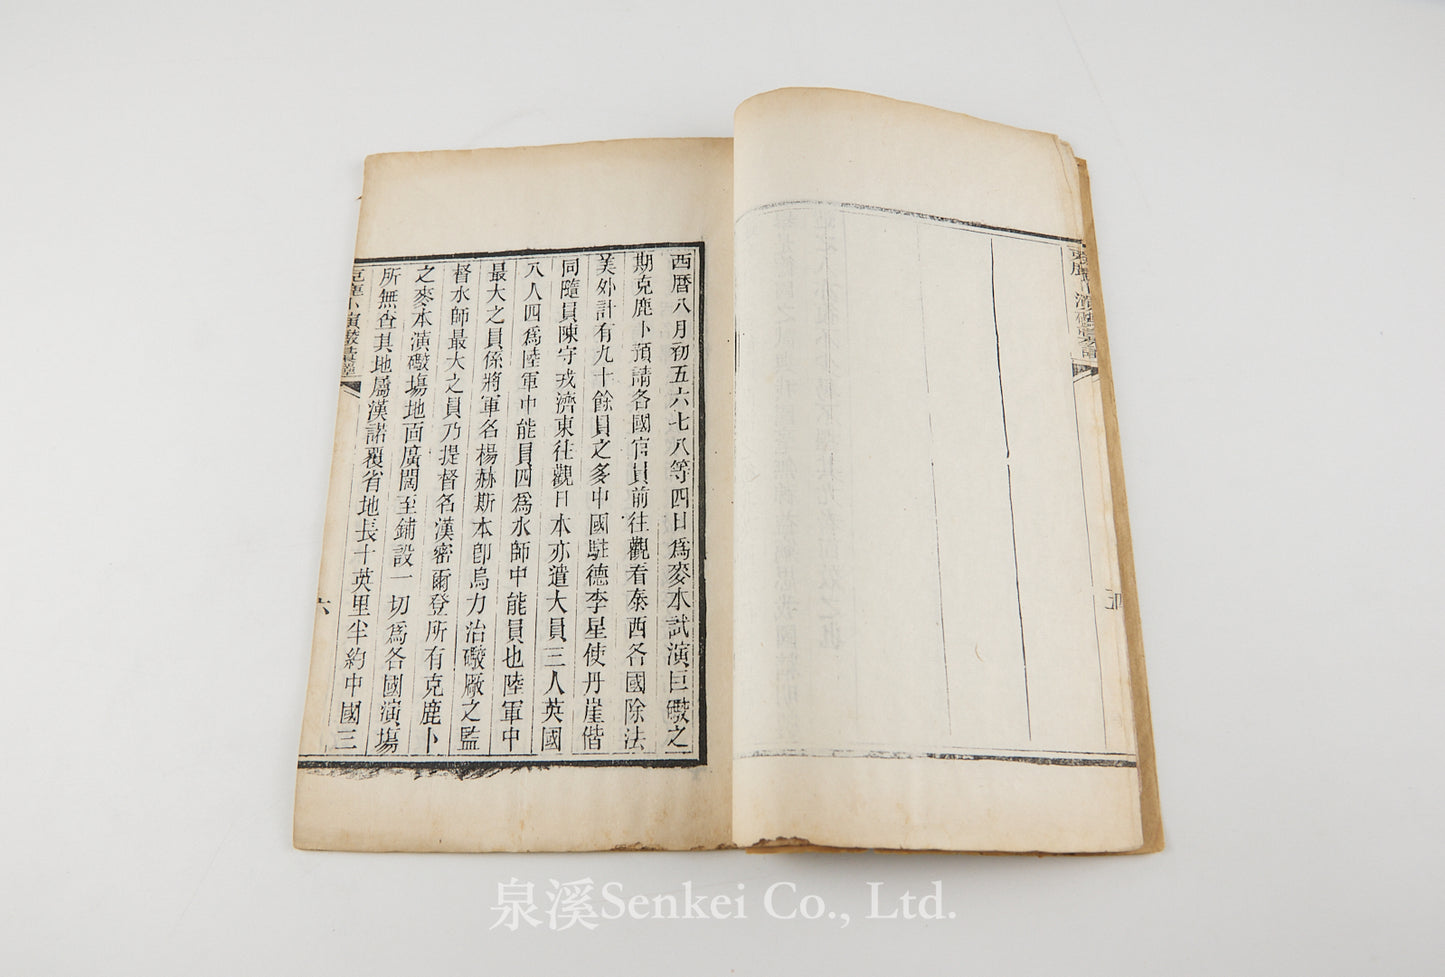 西曆八月初五六七八等四日爲麥本試演巨礮之
期克鹿卜預請各國官員前往觀看泰西各國除法
美外計有九十餘員之多中國駐德李星使丹崖偕
同隨員陳守戎濟東往觀日本亦遣大員三人英國
八人四爲陸軍中能員四爲水師中能員也陸軍中
最大之員係將軍名楊赫斯本卽烏力治礮厰之監
督水師最大之員乃提督名漢密爾登所有克鹿卜
之麥本演礮塲地面廣闊至鋪設一切爲各國演塲
所無查其地屬漢諾覆省地長十英里半約中國三
六
泉溪Senkei Co., Ltd.